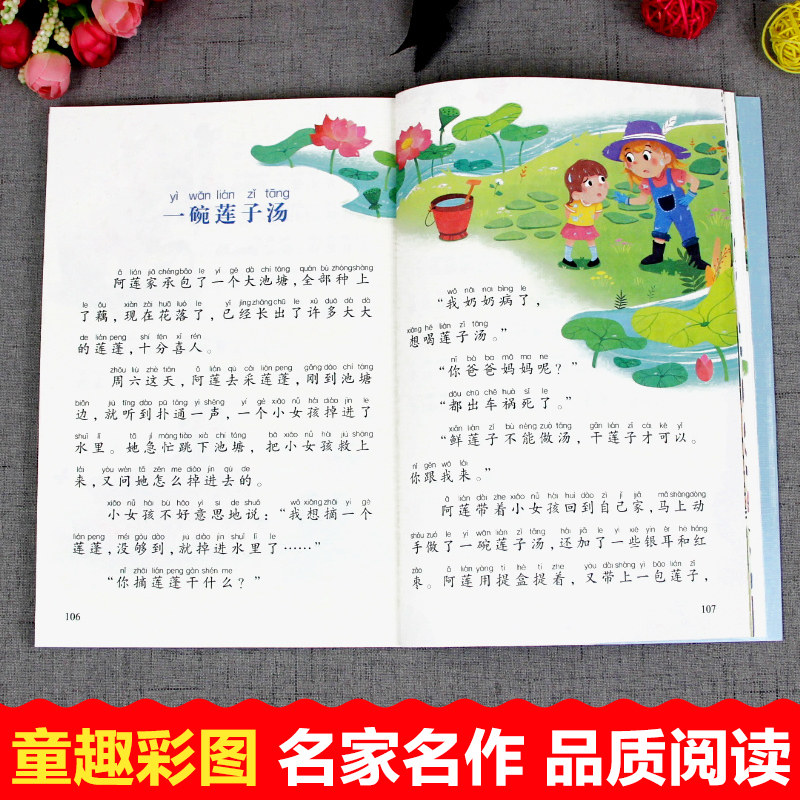 yì wǎn lián zǐ tāng
一碗莲子汤
ā lián jiā chéng bāo le yí gè dà chí táng quán bù zhòng shàng
阿莲家承包了一个大池塘，全部种上
le ǒu xiàn zài huā luò le yǐ jīng zhǎng chū le xǔ duō dà dà
了藕，现在花落了，已经长出了许多大大
de lián peng shí fēn xǐ rén
的莲蓬，十分喜人。
zhōu liù zhè tiān ā lián qù cǎi lián peng gāng dào chí táng
周六这天，阿莲去采莲蓬，刚到池塘
biān jiù tīng dào pū tōng yì shēng yí gè xiǎo nǚ hái diào jìn le
边，就听到扑通一声，一个小女孩掉进了
shuǐ lǐ tā jí máng tiào xià chí táng bǎ xiǎo nǚ hái jiù shàng
水里。她急忙跳下池塘，把小女孩救上
lái yòu wèn tā zěn me diào jìn qù de
来，又问她怎么掉进去的。
xiǎo nǚ hái bù hǎo yì si de shuō wǒ xiǎng zhāi yí gè
小女孩不好意思地说：“我想摘一个
lián peng méi gòu dào jiù diào jìn shuǐ lǐ le
莲蓬，没够到，就掉进水里了……”
nǐ zhāi lián peng gàn shén me
“你摘莲蓬干什么？”
106
wǒ nǎi nai bìng le
“我奶奶病了，
xiǎng hē lián zǐ tāng
想喝莲子汤。”
nǐ bà ba mā ma ne
“你爸爸妈妈呢？”
dōu chū chē huò sǐ le
“都出车祸死了。”
xiān lián zǐ bù néng zuò tāng gān lián zǐ cái kě yǐ
“鲜莲子不能做汤，干莲子才可以。
nǐ gēn wǒ lái
你跟我来。”
ā lián dài zhe xiǎo nǚ hái huí dào zì jǐ jiā mǎ shàng dòng
阿莲带着小女孩回到自己家，马上动
shǒu zuò le yì wǎn lián zǐ tāng hái jiā le yì xiē yín ěr hé hóng
手做了一碗莲子汤，还加了一些银耳和红
zǎo ā lián yòng tí hé tí zhe yòu dài shàng yì bāo lián zǐ
枣。阿莲用提盒提着，又带上一包莲子，
107
童趣彩图 名家名作 品质阅读